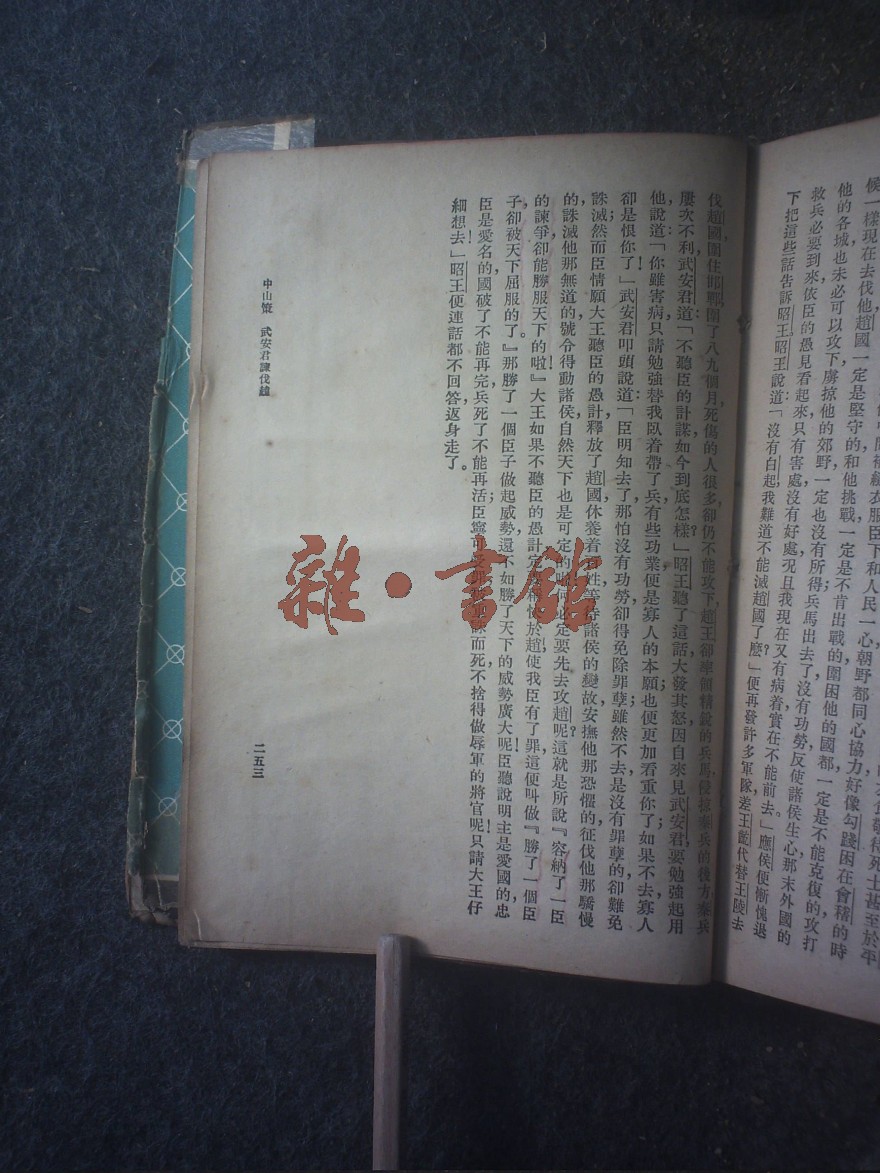 侯一樣現在去伐他趙國一定是堅守的和他挑戰一定是不肯出戰的圍困他的國都一定是不能克復的攻打
他的各城也未必可以攻下虜掠他的郊野一定也沒有所得兵馬出去了沒有功勞反使諸侯生心那末外國的
救兵必要到來依臣的愚見看起來只有害處沒有好處況且我現在又有病着實在不能前去。」應侯便慚愧退
下把這些話告訴昭王昭王說道：「沒有白起我難道不能滅趙國了麽？」便再發許多軍隊差王齕代替王陵去
伐趙國圍住邯鄲圍了八九個月死傷的人很多卻仍不能攻下趙王卻率領精銳的兵馬侵掠秦兵的後方秦兵
屢次不利武安君道：「不聽臣的計謀如今到底怎樣？」昭王聽了這話大發其怒因自來見武安君要勉強起用
他說道：「你雖害病只請勉強替我臥着帶了兵有些功業便是寡人的本願也便更加看重你了如果不去寡人
卻是恨你了！」武安君叩頭說道：「臣明知去了那怕沒有功勞卻得免除罪孽雖然不去是沒有罪孽的卻難免
誅滅；然而臣情願大王聽臣的愚計釋放了趙國休養着 姓等待諸侯的變故安撫他那恐懼的征伐他那驕慢
的誅滅他那無道的號令得動諸侯自然天下也是可定的 何 定要先去攻趙呢？這就是所說『容納了一臣
的諫爭卻能勝服天下的啦！』大王如果不聽臣的愚計定 於趙使我臣有了罪這便叫做『勝了一個臣
子卻被天下屈服的了。』那勝了一個臣子做起威勢還不如勝了天下的威勢廣大呢！臣聽說明主是愛國的忠
臣是愛名的國破了不能再完兵死了不能再活；臣寧可 而死不捨得做辱軍的將官呢！只請大王仔
細想去！」昭王便連話都不回答返身走了。
中山策 武安君諫伐趙
二五三
雜·書館